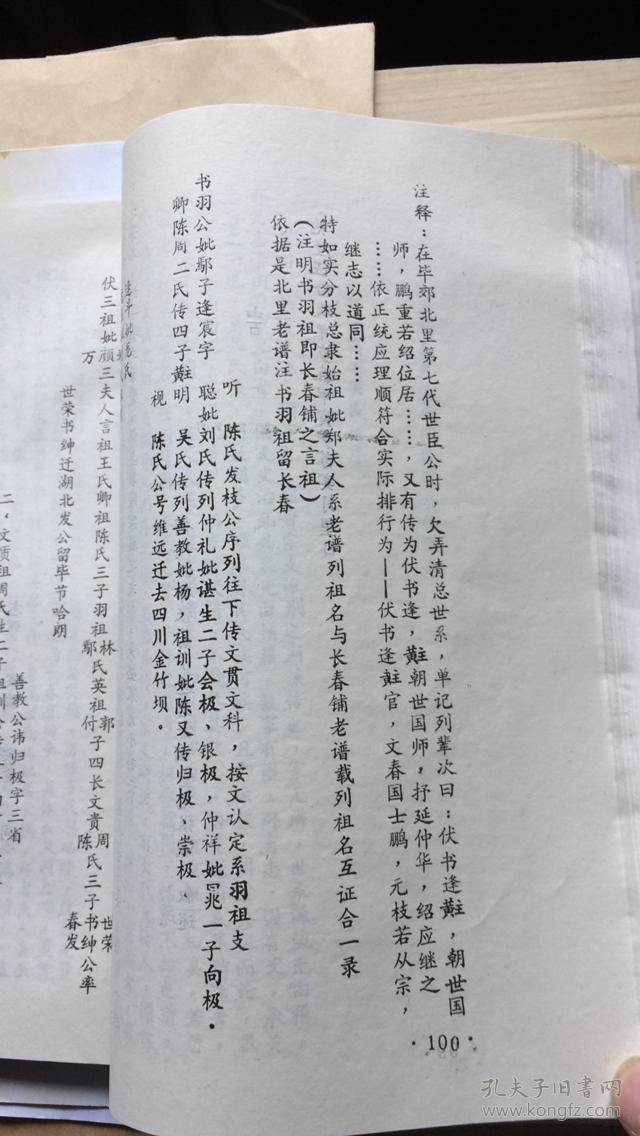 注释：在毕郊北里第七代世臣公时，欠弄清总世系，单记列辈次曰：伏书逢黈，朝世国
师，鹏重若绍位居……，又有传为伏书逢，黈朝世国师，抒延仲华，绍应继之
……依正统应理顺符合实际排行为——伏书逢黈官，文春国士鹏，元枝若从宗，
继志以道同……
特如实分枝总隶始祖妣郑夫人系老谱列祖名与长春铺老谱载列祖名互证合一录
（注明书羽祖即长春铺之言祖）
依据是北里老谱注书羽祖留长春
听 陈氏发枝公序列往下传文贯文科，按文认定系羽祖支
书羽公妣鄢子逢宸字 聪妣刘氏传列仲礼妣谌生二子会极、银极，仲祥妣 兆一子向极．
卿陈周二氏传四子黈明 吴氏传列善教妣杨，祖训妣陈又传归极、崇极、
视 陈氏公号维远迁去四川金竹坝．
伏三祖妣颜三夫人言祖王氏卿祖陈氏三子羽祖林鄢氏英祖郭付子四长文贵周陈氏三子书绅公率
万 世荣书绅迁湖北发公留毕节哈朗 世荣春发
善教公讳归极字三省
二，文质祖周氏生二子祖训
·100·
孔夫子旧书网
www.kongfz.com